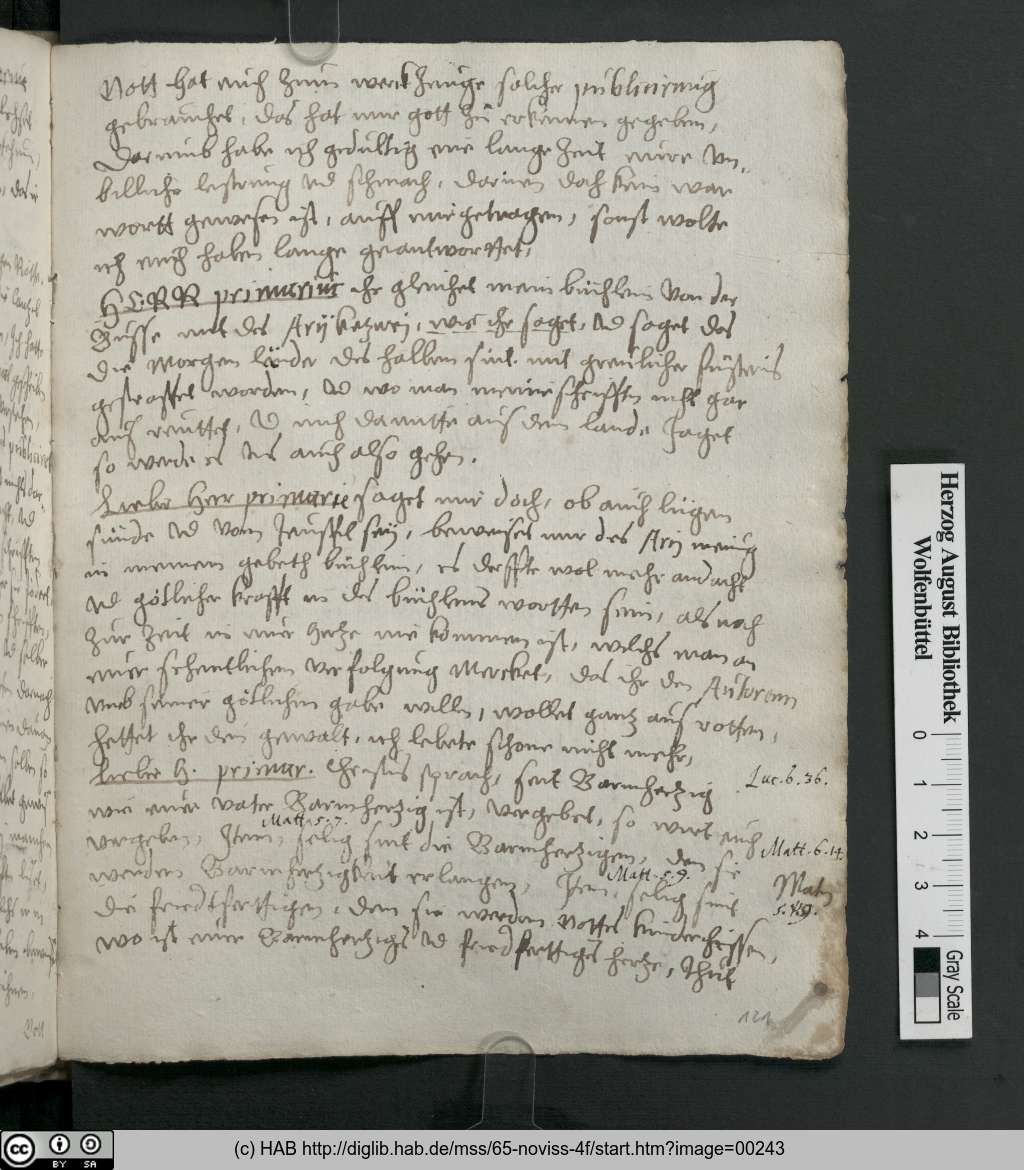 Gott hat euch zum werckzeuge solcher publicirung
gebrauchet, das hat mir gott zu erkennen gegeben,
Darumb habe ich gedultig eine lange zeit eure vn
billiche lesterung vnd schmach, darinen doch kein war
wortt gewesen ist, auff mir getragen, sonst wolte
ich euch haben lange geantworttet,
HERR primarius ihr gleichet mein büchlein Von der
Busse mit des Arij ketzerej, wie ihr saget, vnd saget das
die Morgen länder des halben sint mit greulicher finsternis
gestraffet worden, vnd wo man meine schrifften nicht gar
auß rottet, vnd mich damitte aus dem lande Jaget
so werde es vns auch also gehen.
Lieber Herr primarie saget mir doch, ob auch lügen
sünde vnd vom Teuffel sey, beweiset mir des Arij meinung
in meinem gebeth büchlein, es derffte wol mehr andacht
vnd götlicher krafft in des büchleins wortten sein, als noch
zur zeit in euer hertze nie kommen ist, welchs man an
euer schentlichen verfolgung Mercket, das ihr den Autorem
vmb seiner götlichen gabe willen, wollet gantz aus rotten,
hettet ihr den gewalt, ich lebete schone nicht mehr,
Lieber H. primar. Christus sprach, seit Barmhertzig
Luc. 6. 36.
wie euer vater Barmhertzig ist, vergebet, so wirt euch
Matt. 5. 7.
vergeben, Item, selig sint die Barmhertzigen, den sie
Matt. 6. 14
werden Barmhertzigkeit erlangen, Item, selig sint
Matt. 5. 9.
Math
5. v. 9.
die friedtferttigen, den sie werden Gottes kinder heissen,
wo ist euer Barmhertziges vnd friedtferttiges hertze, Thut
121
Gott
Herzog August Bibliothek
Wolfenbüttel
0
1
2
3
4
Gray Scale
cc BY SA
(c) HAB http://diglib.hab.de/mss/65-noviss-4f/start.htm?image=00243